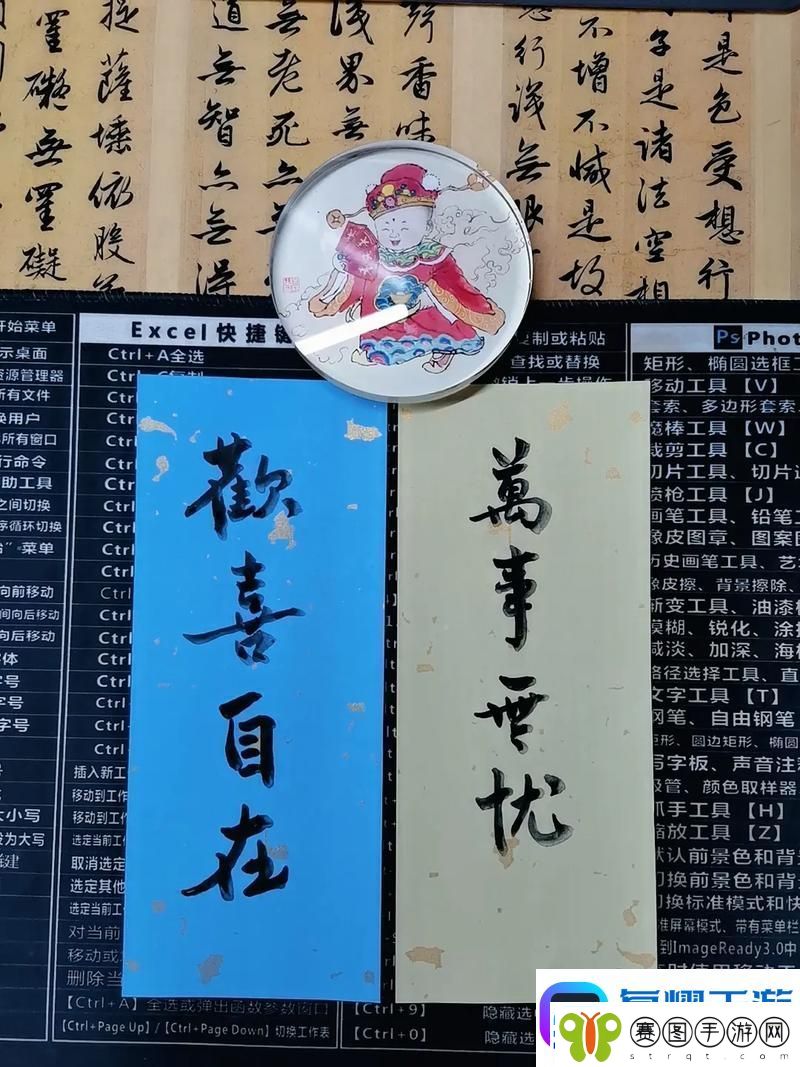 是色受想行
子是諸法空相
不增不減是故
行識無眼
聲香味
識界無
無老死亦無
道無智亦無得
提薩埵依般若
罣礙無罣礙
Excel快捷键
Ctrl+A全选
Photo
开始菜单
示桌面
资源管理器
所有文件
换用户
所有窗口
行命令
助工具
之间切换
序循环切换
”菜单
向前移动
间向后移动
向后移动
字体
字号
字号
字号
大小写
设为大写
复制或粘贴
查找或替换
矩形、椭圆选框工
移动工具【V】
套索、多边形套索
魔棒工具【W】
裁剪工具【C】
切片工具、切片选
喷枪工具【J】
画笔工具、铅笔工
像皮图章、图案图
历史画笔工具、艺
像皮擦、背景擦除、
渐变工具、油漆桶
模糊、锐化、涂抹
减淡、加深、海棉
路径选择工具、直
文字工具【T】
钢笔、自由钢笔
矩形、圆边矩形、椭圆
写字板、声音注释
吸管、颜色取样器
抓手工具【H】
缩放工具【Z】
默认前景色和背景
切换前景色和背景
切换标准模式和快
准屏幕模式、带有菜单栏
到ImageReady3.0中
歡喜自在
萬事無忧
插入新工
移动到工作
移动到工作
选定当前工
取消选定
选定其他
选定当前工
对当前
移动或
删除当
【Ctrl+A】全选或弹出函数参数窗口
【Ctrl+Page Up】/【Ctrl+Page Down】切换工作表
【Ctrl+9】
隐藏选
【Ctrl+0】
隐藏选
赛图手游网
strqt.com